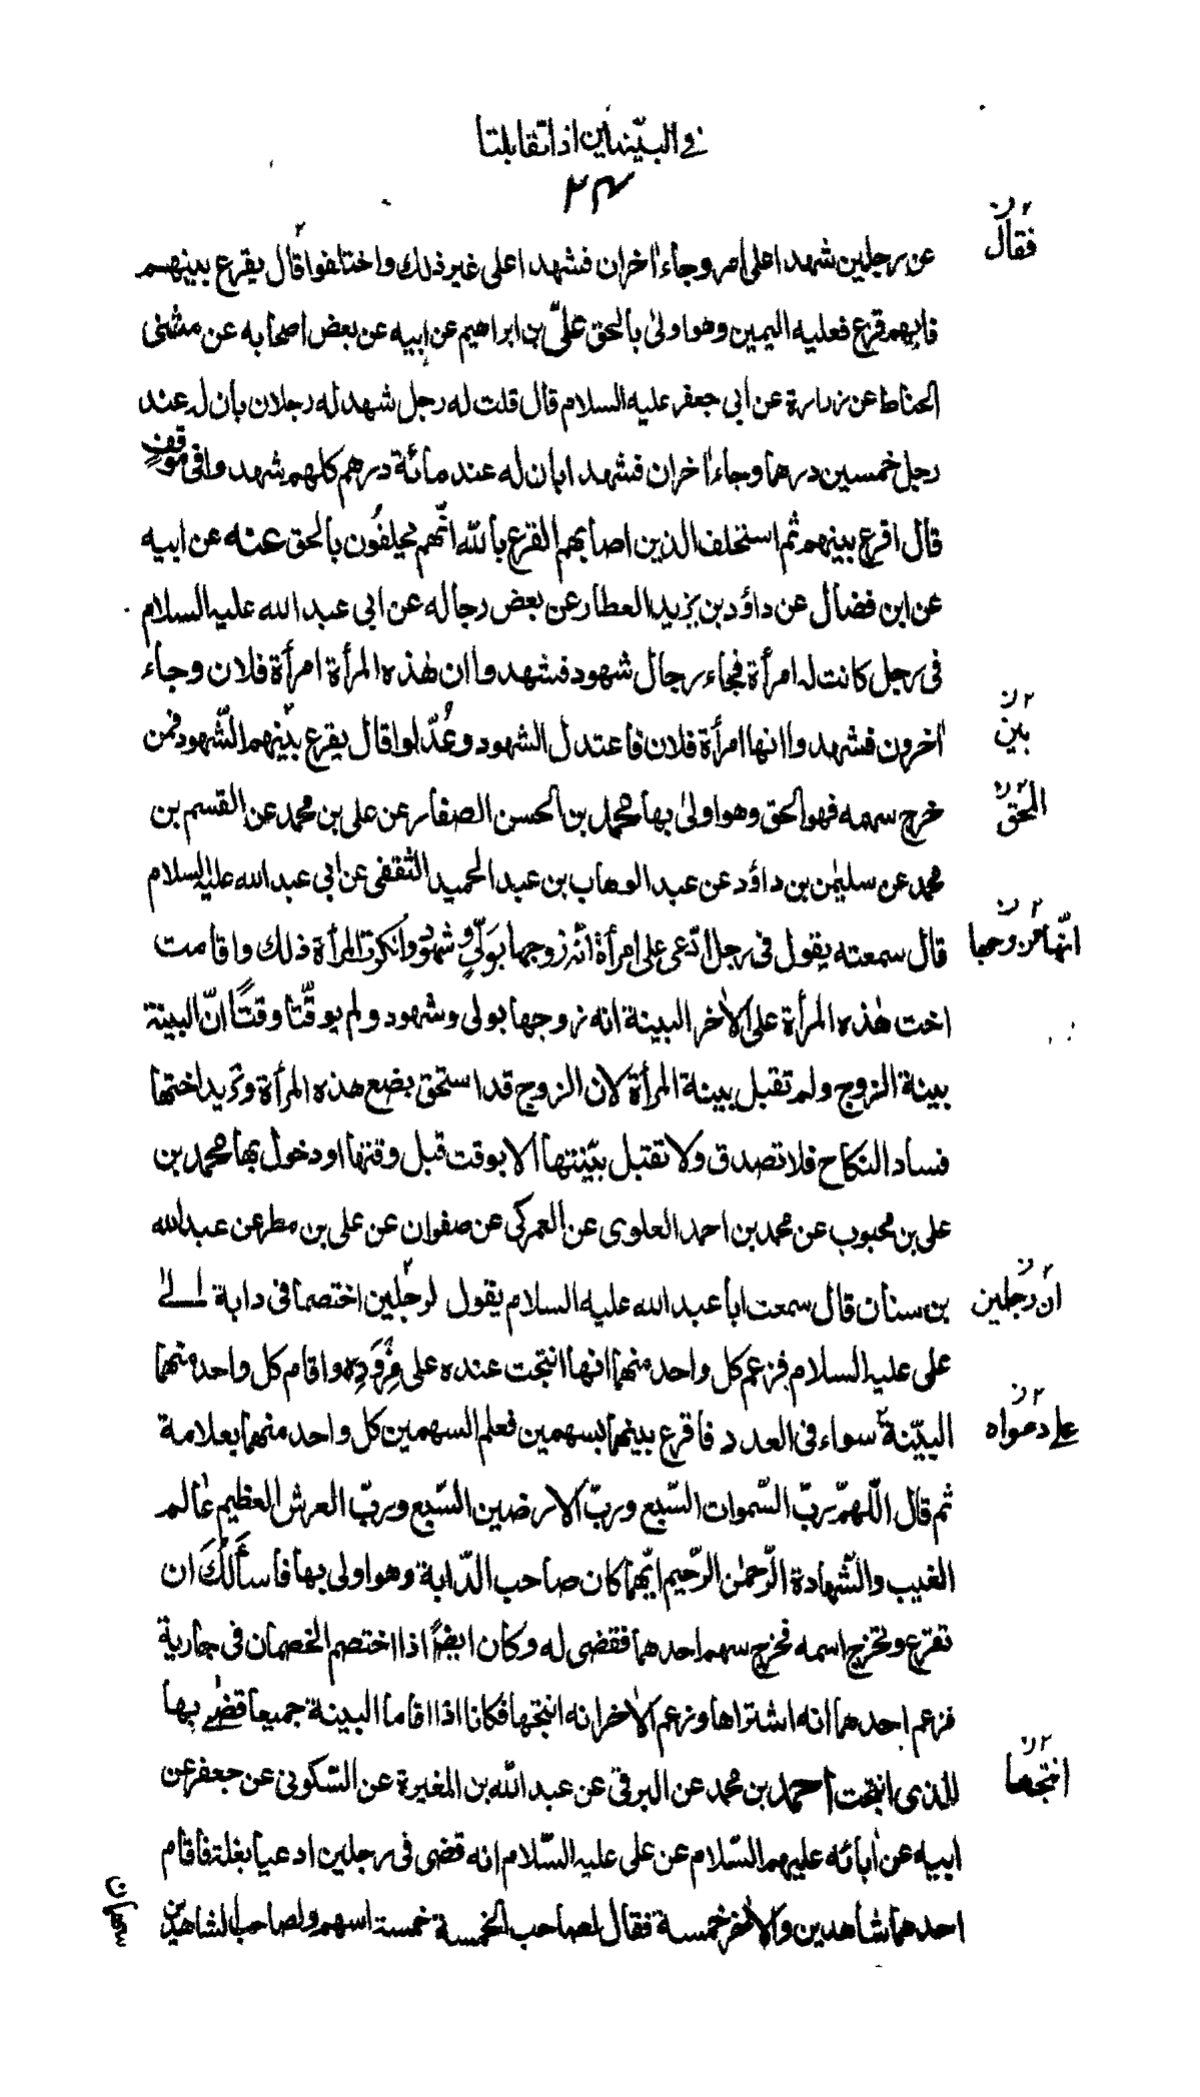 في البيّنتين اذا تقابلتا
٢٤
عن رجلين شهدا على امر وجاء اخران فشهدا على غير ذلك واختلفوا قال يقرع بينهم
فقال
فايهم قرع فعليه اليمين وهو اولى بالحق علىّ بن ابراهيم عن ابيه عن بعض اصحابه عن مثنى
الحناط عن زرارة عن ابى جعفر عليه السلام قال قلت له رجل شهد له رجلان بان له عند
رجل خمسين درهما وجاء اخران فشهدا بان له عنده مائة درهم كلهم شهدوا فى موقف
قال اقرع بينهم ثم استحلف الذين اصابهم القرع بالله انّهم يحلفون بالحق عنه عن ابيه
عن ابن فضال عن داؤد بن يزيد العطار عن بعض رجاله عن ابى عبد الله عليه السلام
فى رجل كانت له امرأة فجاء رجال شهود فشهدوا ان هذه المرأة امرأة فلان وجاء
اخرون فشهدوا انها امرأة فلان فاعتدل الشهود وعُدّلوا قال يقرع بينهم الشّهود فمن
بين
خرج سهمه فهو الحق وهو اولى بها محمد بن الحسن الصفار عن على بن محمد عن القسم بن
المحق
محمد عن سليمن بن داؤد عن عبد الوهاب بن عبد الحميد الثقفى عن ابى عبد الله عليه السلام
قال سمعته يقول فى رجل ادّعى على امرأة انّه زوجها بوَلىٍّ و شهود وانكرت المرأة ذلك واقامت
انّها من وجها
اخت هذه المرأة على الاخر البينة انه زوجها بولى وشهود ولم يوقّتا وقتًا انّ البينة
بينة الزوج ولم تقبل بينة المرأة لان الزوج قد استحق بضع هذه المرأة وتريد اختها
فساد النكاح فلا تصدق ولا تقتبل بيّنتها الا بوقت قبل وقتها او دخول بها محمد بن
على بن محبوب عن محمد بن احمد العلوى عن العمركى عن صفوان عن على بن مطر عن عبد الله
بن سنان قال سمعت ابا عبد الله عليه السلام يقول لرجلين اختصما فى دابة الى
انّ رجلين
على عليه السلام فزعم كل واحد منهما انها انتجت عنده على مِزْوَدِه واقام كل واحد منهما
البيّنة سواء فى العدد فاقرع بينهما بسهمين فعلم السهمين كل واحد منهما بعلامة
على دعواه
ثم قال اللّهمّ ربّ السّموات السّبع وربّ الارضين السّبع وربّ العرش العظيم عالم
الغيب والشّهادة الرّحمن الرّحيم ايّهما كان صاحب الدّابة وهو اولى بها فاسألك ان
تقرع وتخرج اسمه فخرج سهم احدهما فقضى له وكان ايضاً اذا اختصم الخصمان فى جارية
فزعم احدهما انه اشتراها وزعم الاخر انه انتجها فكانا اذا اقاما البينة جميعا قضى بها
للذى انتجت احمد بن محمد عن البرقى عن عبد الله بن المغيرة عن السّكونى عن جعفر عن
انتجها
ابيه عن ابائه عليهم السّلام عن على عليه السّلام انه قضى فى رجلين ادعيا بغلة فاقام
احدهما شاهدين والاخر خمسة فقال لصاحب الخمسة خمسة اسهم ولصاحب الشاهدين
سهمان